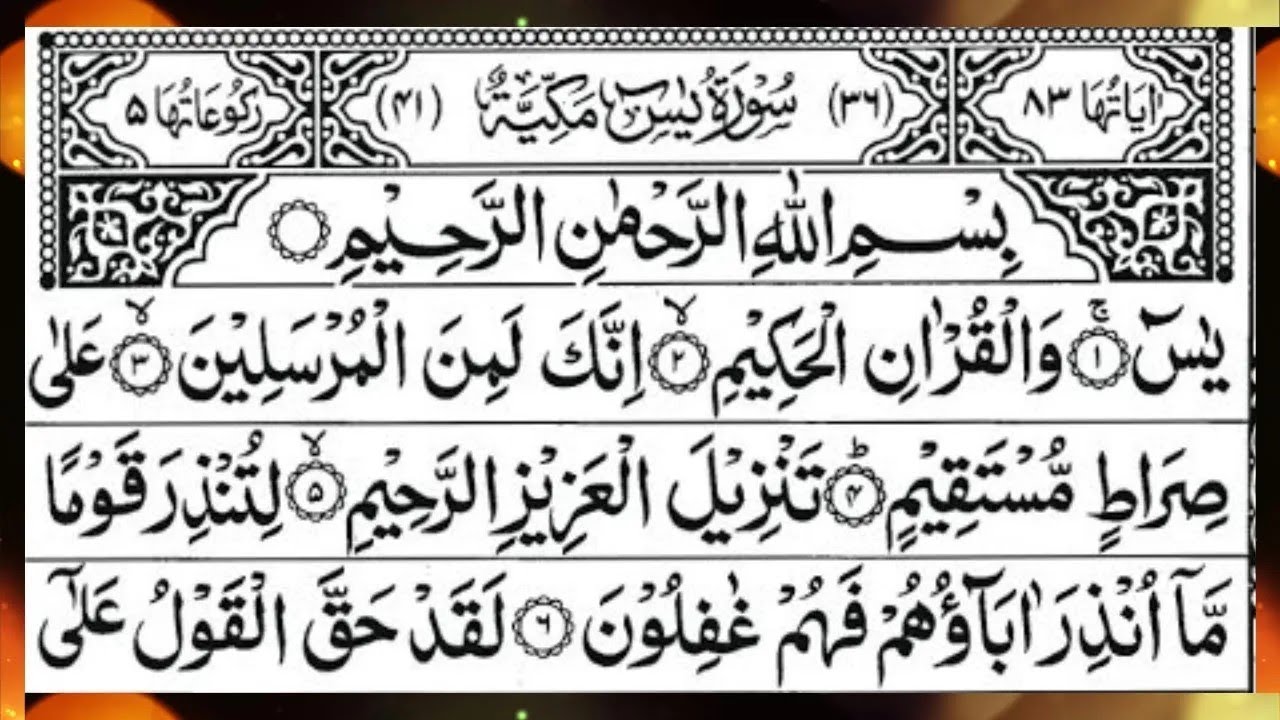 اٰيَاتُهَا ٨٣ (٣٦) سُوْرَةُ يٰسٓ مَكِّيَّةٌ (٤١) رُكُوْعَاتُهَا ٥
بِسْمِ اللّٰهِ الرَّحْمٰنِ الرَّحِيْمِ ۝
يٰسٓ ۝١ۚ وَالْقُرْاٰنِ الْحَكِيْمِ ۝٢ۙ اِنَّكَ لَمِنَ الْمُرْسَلِيْنَ ۝٣ۙ عَلٰى
صِرَاطٍ مُّسْتَقِيْمٍ ۝٤ؕ تَنْزِيْلَ الْعَزِيْزِ الرَّحِيْمِ ۝٥ۙ لِتُنْذِرَ قَوْمًا
مَّاۤ اُنْذِرَ اٰبَآؤُهُمْ فَهُمْ غٰفِلُوْنَ ۝٦ لَقَدْ حَقَّ الْقَوْلُ عَلٰٓى